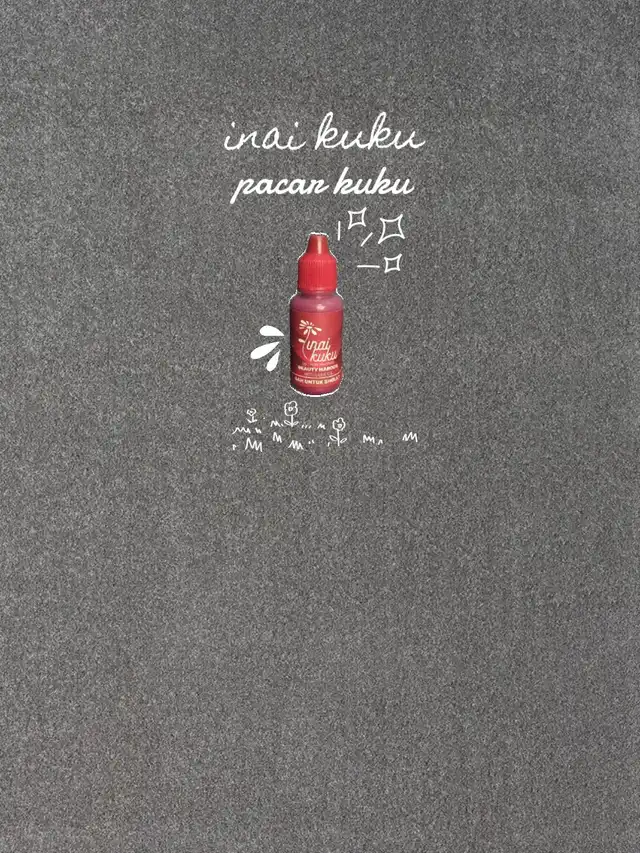 inai kuku
pacar kuku
inai
kuku
BEAUTY MAROON